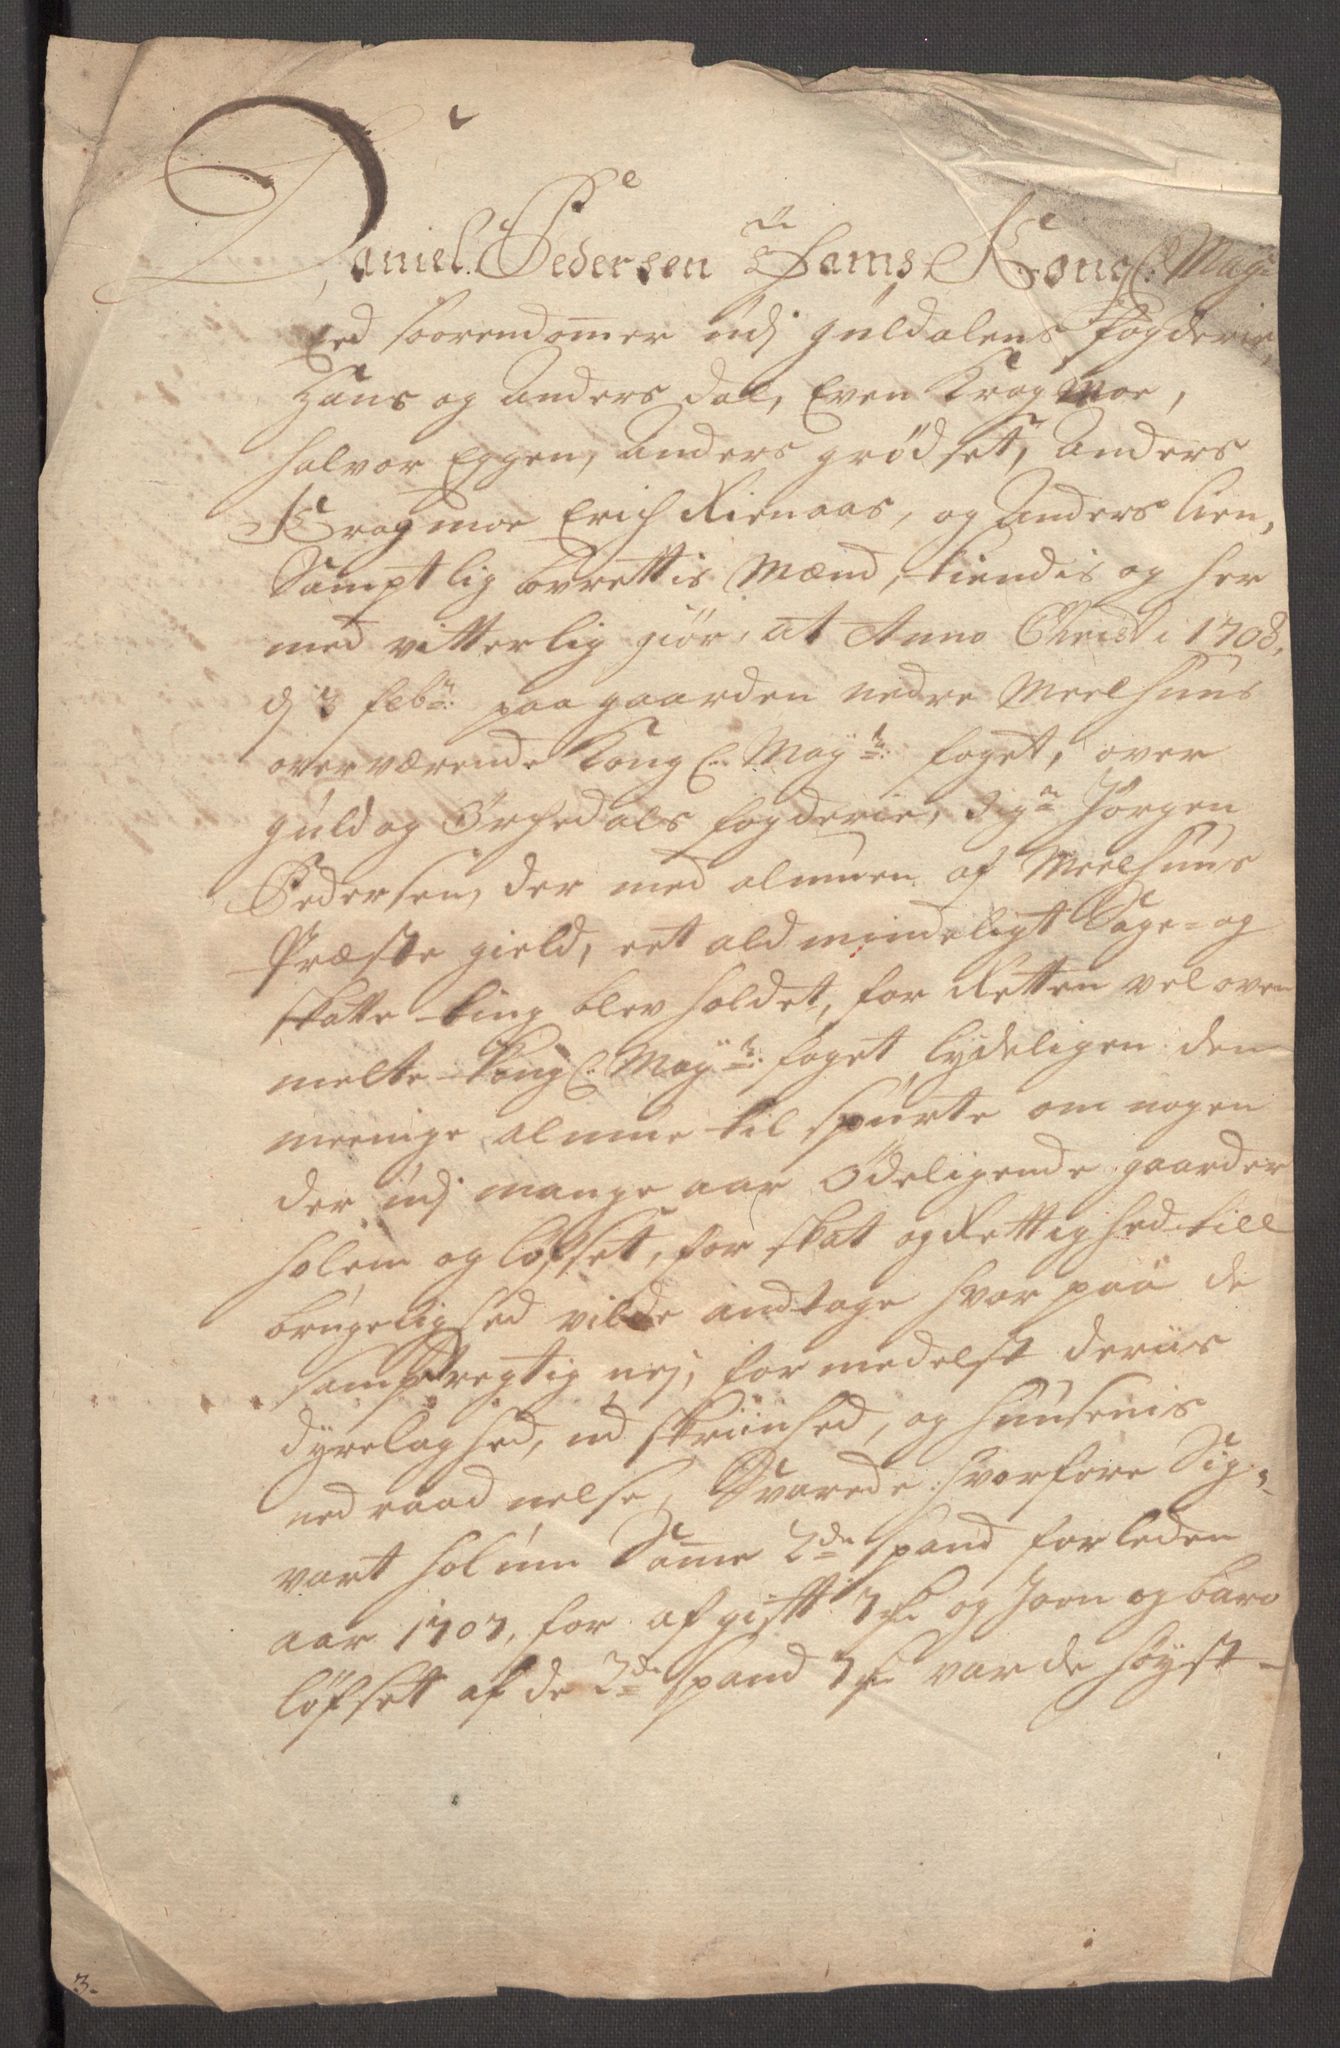 Daniel Pedersen Thams Kong: May:
Eed soorendommer udj Guldalens fogderie,
Hans og Anders dal, Even Krogmoe,
halvor Eggen, Anders grødset, Anders
Krogmoe Erich Rienaas, og Anders lien,
Samptlig lovrettis Mænd, kiendis og her
med vitterlig giør, at Anno Christi 1708,
dj 3 febr: paa gaarden nedre Meelhuus
overværende Kong: May: foget, over
guld og Ørchedals fogderie, Sigr Jørgen
Pedersen, der med almuen af Meelhuus
Præste gield, eet ald mindeligt Sage- og
skatte ting blev holdet, for Retten vel oven
melte Kong: May: foget, lydeligen den
meenige almue til spurte om nogen
der udj mange aar Ødeligende gaarder
holem og løfset, for skat og Rettighed till
brugelighed vilde andtage hvor paa de
samptregtig nej, formedelst deriis
dyrelaghed, ud skriinhed, og huusenis
nedraadnelse, Svarede hvorfore Sig-
vart holum Samme 2de spand forleden
aar 1707, for afgift 3 og Joen og baro
løfsett af de 2de spand 3 var de høyst-
3.